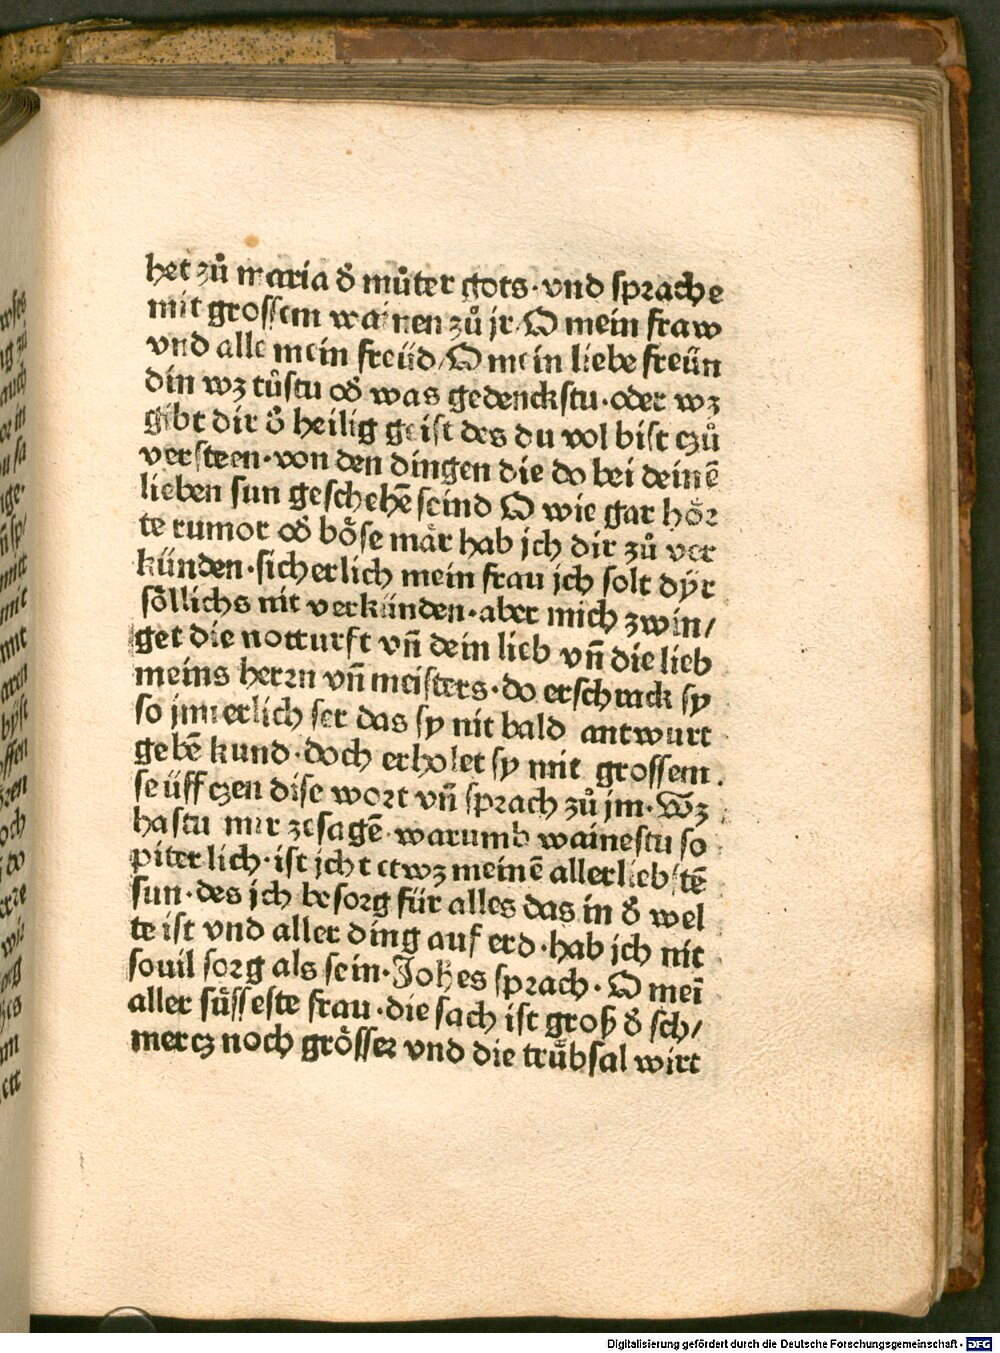 het zů maria d̕ můter gots·vnd sprache
mit grossem wainen zů jr/O mein fraw
vnd alle mein freüd/O mein liebe freün
din wz tůstu od̕ was gedenckstu·oder wz
gibt dir d̕ heilig geist des du vol bist czů
versteen·von den dingen die do bei deinē
lieben sun geschehē seind O wie gar hoͤr
te rumor od̕ boͤse maͤr hab jch dir zů ver
künden·sicherlich mein frau jch solt dÿr
soͤllichs nit verkünden·aber mich zwin/
get die notturft vn̄ dein lieb vn̄ die lieb
meins herrn vn̄ meisters·do erschrack sy
so jnnerlich ser das sy nit bald antwurt
gebē kund·doch erholet sy mit grossem
seüffczen dise wort vn̄ sprach zů jm·Wz
hastu mir zesagē·warumb wainestu so
piterlich·ist jcht etwz meinē allerliebstē
sun·des jch besorg für alles das in d̕ wel
te ist vnd aller ding auf erd·hab jch nit
souil sorg als sein·Joh̄es sprach·O mei̅
aller suͤsseste frau·die sach ist groß d̕ sch/
mercz noch groͤsser vnd die truͤbsal wirt
Digitalisierung gefördert durch die Deutsche Forschungsgemeinschaft - DFG